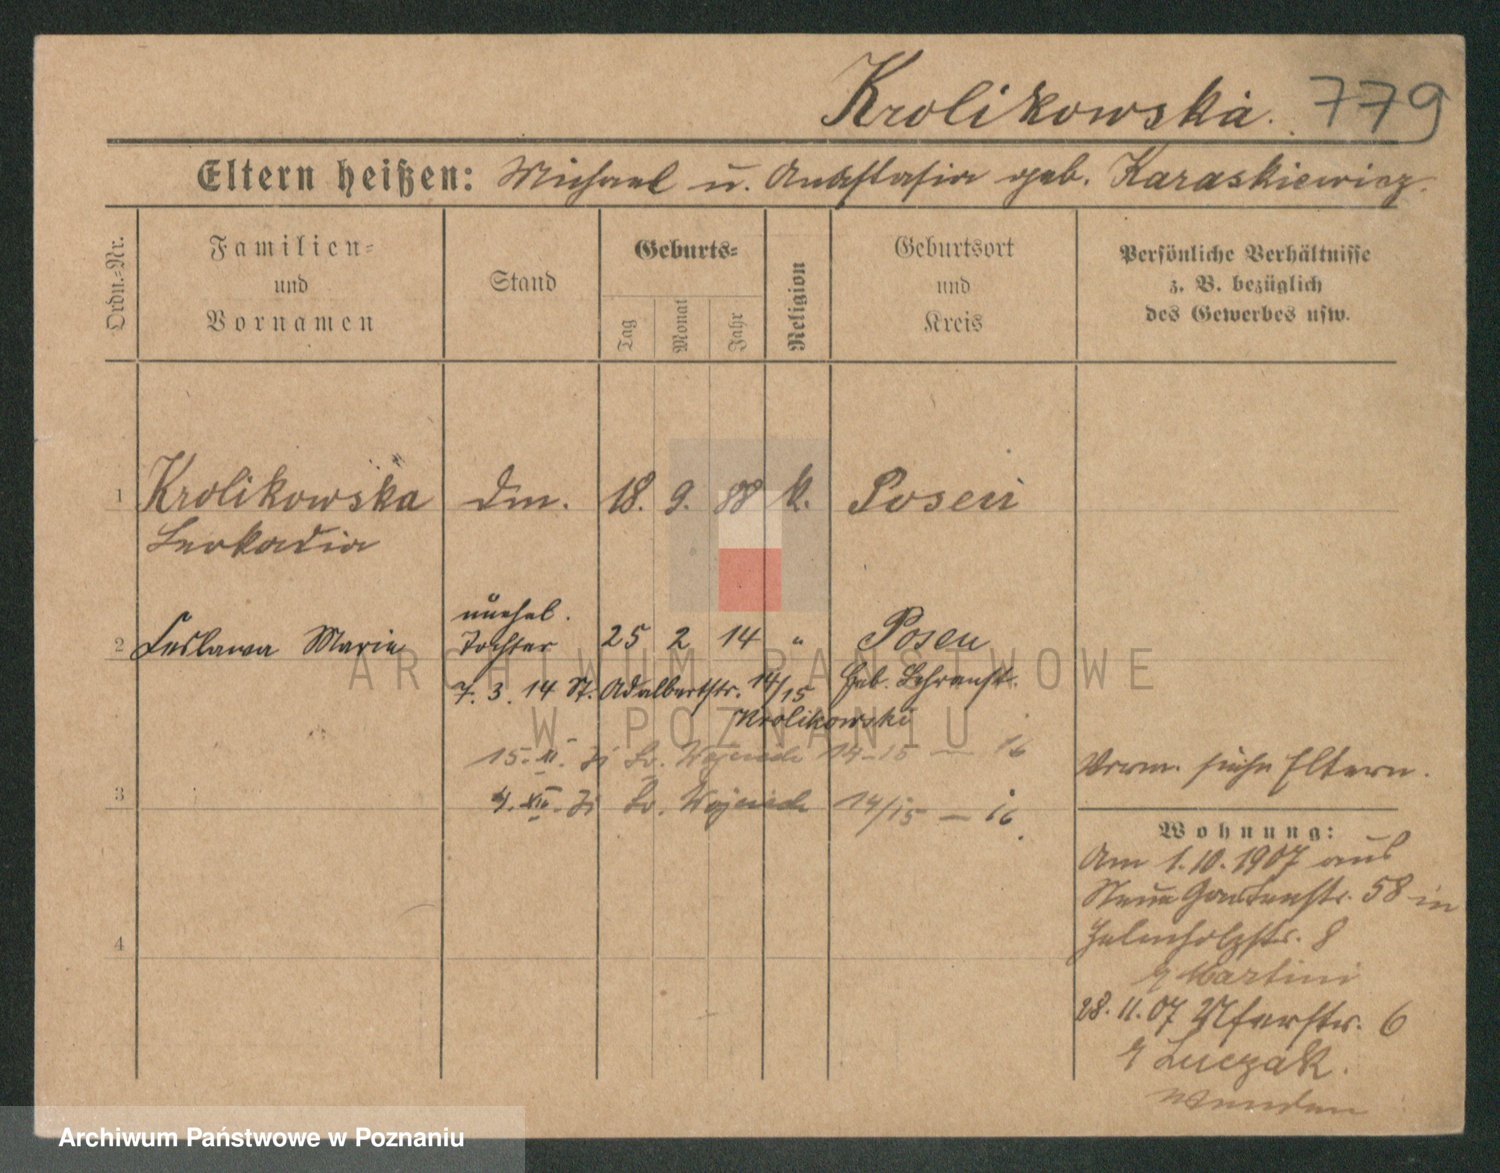 Krolikowska. 779
Eltern heißen: Michael u. Anastasia geb. Karaskiewicz.
Ordn.-Nr.
Familien-
und
Vornamen
Stand
Geburts-
Tag
Monat
Jahr
Religion
Geburtsort
und
Kreis
Persönliche Verhältnisse
z. B. bezüglich
des Gewerbes usw.
1 Krolikowska Dm. 18. 9. 88 k. Posen
Leokadia
unehel.
2 Ceslawa Marie Tochter 25 2 14 " Posen
7. 3. 14 St. Adalbertstr. 14/15 Heb. Lehranst.
Krolikowski
15. XI. Św. Wojciech 14-15 — 16
Vorm. siehe Eltern.
3
4. XII. Św. Wojciech 14/15 — 16
Wohnung:
Am 1.10.1907 aus
Neue Gartenstr. 58 in
Halmholzstr. 8
Martini
28. 11. 07 Uferstr. 6
Luczak.
wenden
4
ARCHIWUM PAŃSTWOWE
W POZNANIU
Archiwum Państwowe w Poznaniu